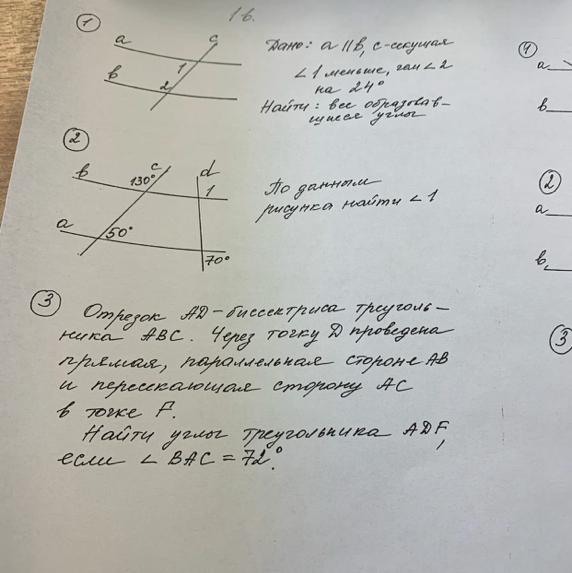 1 в.
① Дано: a ∥ b, c-секущая
∠1 меньше, чем ∠2
на 24°
Найти: все образовав-
шиеся углы
a
c
b
1
2
②
b
c
d
130°
1
a
50°
70°
По данным
рисунка найти ∠1
③ Отрезок AD-биссектриса треуголь-
ника ABC. Через точку D проведена
прямая, параллельная стороне AB
и пересекающая сторону AC
в точке F.
Найти углы треугольника ADF,
если ∠BAC = 72°.
a
b
②
a
b
③